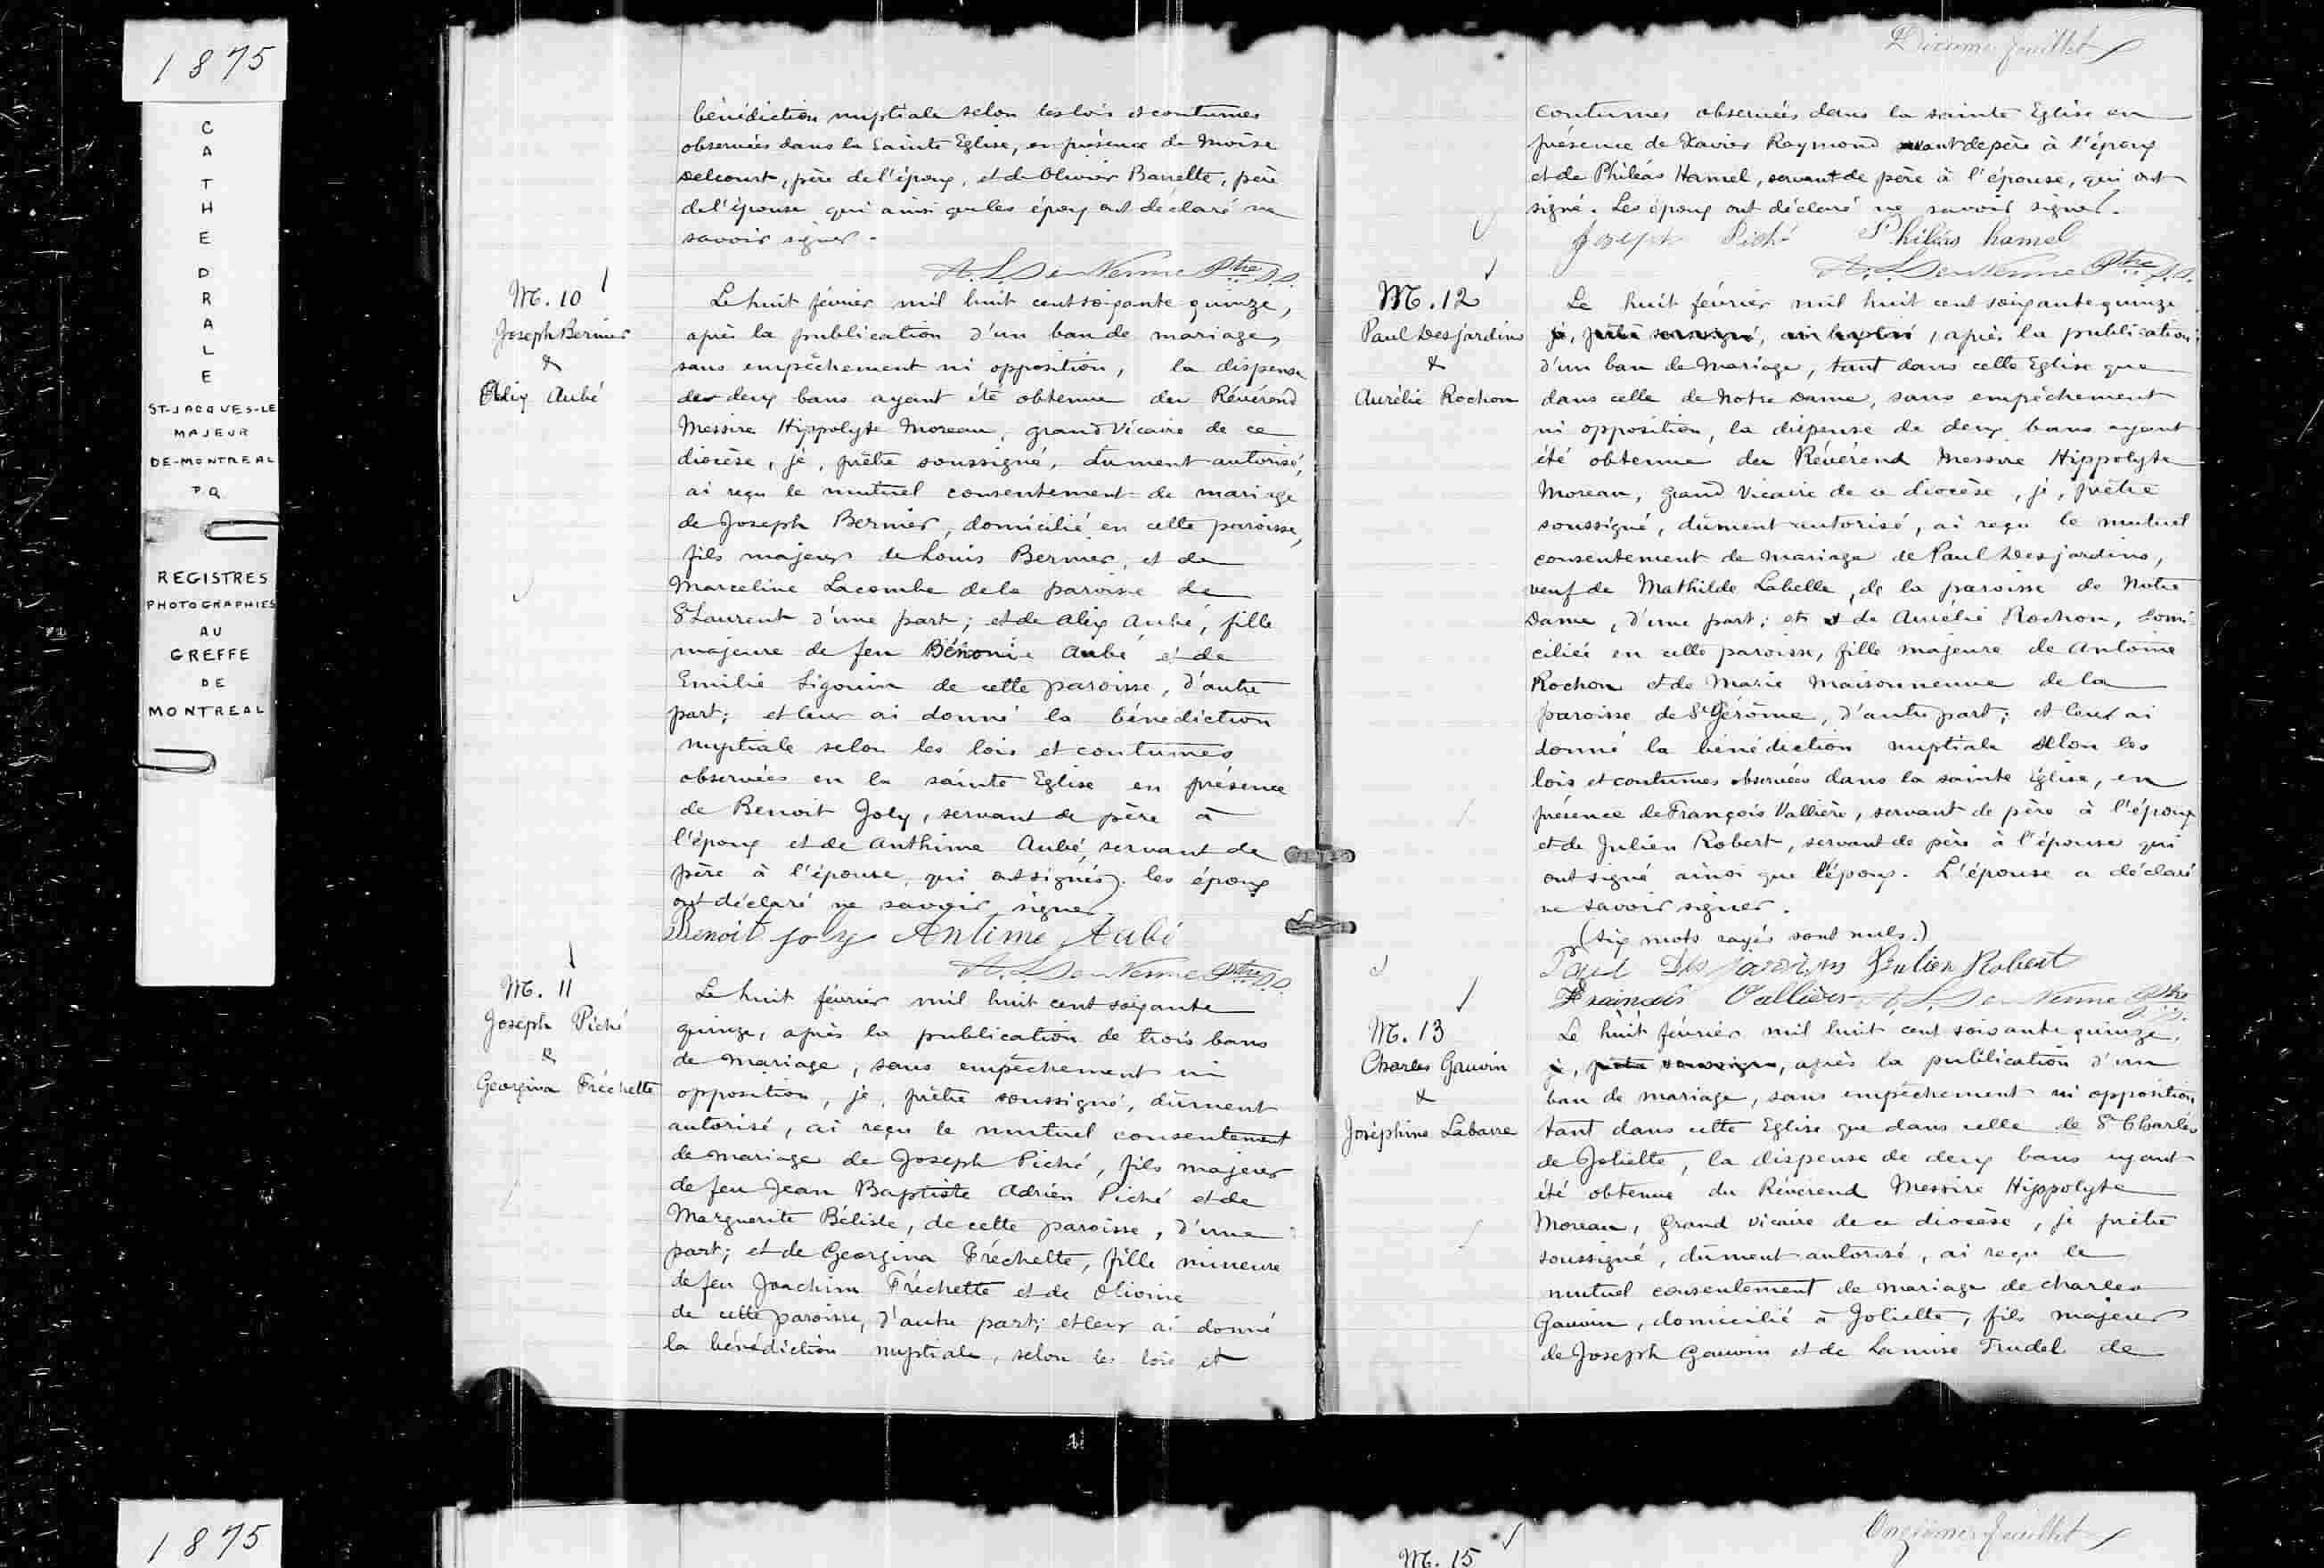 1875
CATHEDRALE
ST-JACQUES-LE
MAJEUR
DE-MONTREAL
P Q
REGISTRES
PHOTOGRAPHIES
AU
GREFFE
DE
MONTREAL
1875
bénédiction nuptiale selon les lois et coutumes
observées dans la Sainte Eglise, en présence de Moïse
Delcourt, père de l'époux, et de Olivier Barrette, père
de l'épouse qui ainsi que les époux ont déclaré ne
savoir signer.
Ptre S.S.
M. 10
Joseph Bernier
&
Alix Aubé
Le huit février mil huit cent soixante quinze,
après la publication d'un ban de mariage,
sans empêchement ni opposition, la dispense
des deux bans ayant été obtenue du Révérend
Messire Hippolyte Moreau, grand Vicaire de ce
diocèse, je, prêtre soussigné, dument autorisé,
ai reçu le mutuel consentement de mariage
de Joseph Bernier, domicilié en cette paroisse,
fils majeur de Louis Bernier, et de
Marceline Lacombe de la paroisse de
St Laurent d'une part; et de Alix Aubé, fille
majeure de feu Bénonie Aubé et de
Emilie Sigouin de cette paroisse, d'autre
part; et leur ai donné la bénédiction
nuptiale selon les lois et coutumes
observées en la sainte Eglise en présence
de Benoit Joly, servant de père à
l'époux et de Anthime Aubé, servant de
père à l'épouse, qui ont signés). les époux
ont déclaré ne savoir signer.
Benoit joly Antime Aubé
Ptre S.S.
M. 11
Joseph Piché
&
Georgina Fréchette
Le huit février mil huit cent soixante
quinze, après la publication de trois bans
de mariage, sans empêchement ni
opposition, je, prêtre soussigné, dûment
autorisé, ai reçu le mutuel consentement
de mariage de Joseph Piché, fils majeur
de feu Jean Baptiste Adrien Piché et de
Marguerite Bélisle, de cette paroisse, d'une
part; et de Georgina Fréchette, fille mineure
de feu Joachim Fréchette et de Olivine
de cette paroisse, d'autre part; et leur ai donné
la bénédiction nuptiale, selon les lois et
Dixième feuillet
coutumes observées dans la sainte Eglise en
présence de Xavier Raymond servant de père à l'époux
et de Philéas Hamel, servant de père à l'épouse, qui ont
signé. Les époux ont déclaré ne savoir signer.
Joseph Piché Philéas hamel
Ptre S.S.
M. 12
Paul Desjardins
&
Aurélie Rochon
Le huit février mil huit cent soixante quinze
je, prêtre soussigné, ai baptisé, après la publication
d'un ban de mariage, tant dans cette Eglise que
dans celle de Notre Dame, sans empêchement
ni opposition, la dispense de deux bans ayant
été obtenue du Révérend Messire Hippolyte
Moreau, grand Vicaire de ce diocèse, je, prêtre
soussigné, dûment autorisé, ai reçu le mutuel
consentement de mariage de Paul Desjardins,
veuf de Mathilde Labelle, de la paroisse de Notre
Dame, d'une part; et de Aurélie Rochon, domi
ciliée en cette paroisse, fille majeure de Antoine
Rochon et de Marie Maisonneuve de la
paroisse de St Gérôme, d'autre part; et leur ai
donné la bénédiction nuptiale selon les
lois et coutumes observées dans la sainte Eglise, en
présence de François Vallière, servant de père à l'époux
et de Julien Robert, servant de père à l'épouse qui
ont signé ainsi que l'époux. L'épouse a déclaré
ne savoir signer.
(Six mots rayés sont nuls.)
Paul Desjardins Julien Robert
François Vallière Ptre
S.S.
M. 13
Charles Gauvin
&
Joséphine Labarre
Le huit février mil huit cent soixante quinze,
je, prêtre soussigné, après la publication d'un
ban de mariage, sans empêchement ni opposition
tant dans cette Eglise que dans celle de St Charles
de Joliette, la dispense de deux bans ayant
été obtenue du Révérend Messire Hippolyte
Moreau, Grand vicaire de ce diocèse, je prêtre
soussigné, dûment autorisé, ai reçu le
mutuel consentement de mariage de Charles
Gauvin, domicilié à Joliette, fils majeur
de Joseph Gauvin et de Trudel de
Onzième feuillet
M. 15